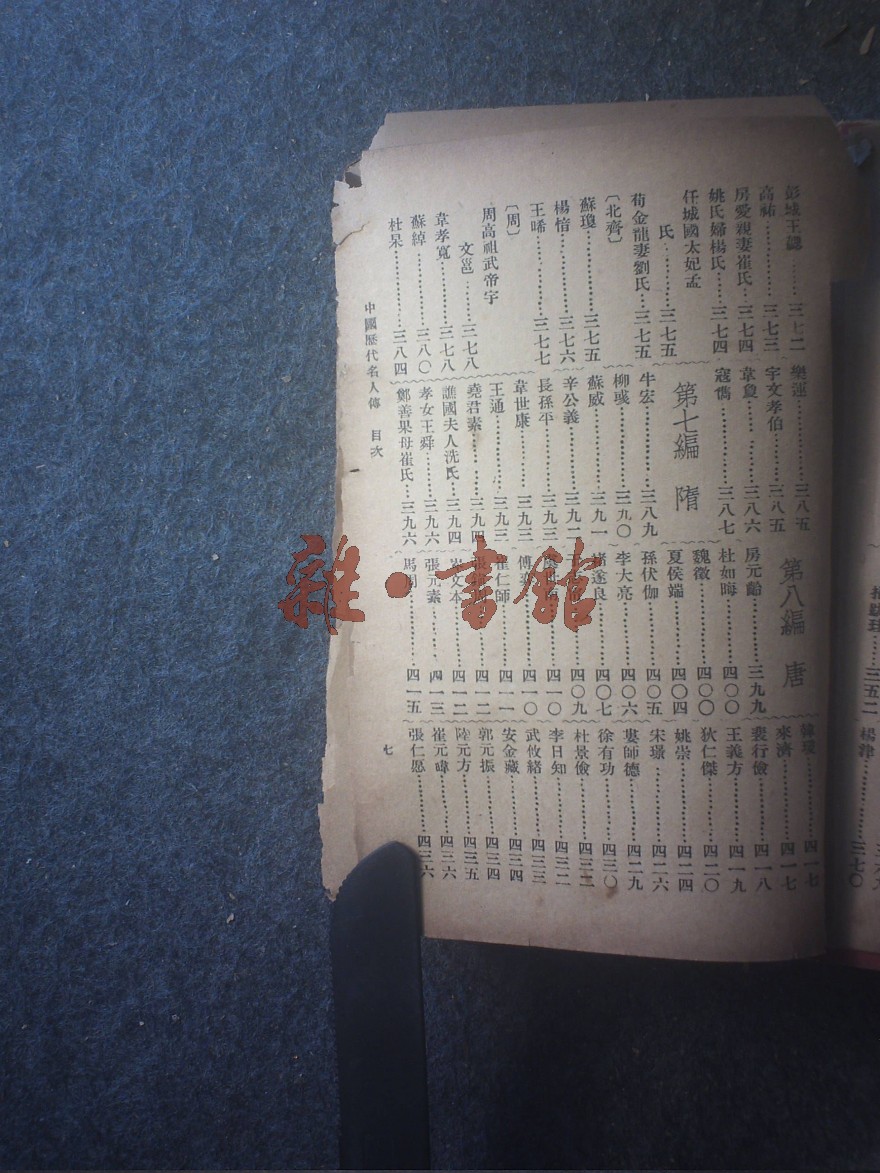 彭城王勰……三七二
高祐……三七三
房愛親妻崔氏…三七四
姚氏婦楊氏……三七四
任城國太妃孟
氏……三七五
荀金龍妻劉氏…三七五
〔北齊〕
蘇瓊……三七五
楊愔……三七六
王晞……三七七
〔周〕
周高祖武帝宇
文邕……三七八
韋孝寬……三七八
蘇綽……三八〇
杜杲……三八四
樂運……三八五
宇文孝伯……三八五
韋敻……三八六
寇儁……三八七
第七編 隋
牛宏……三八九
柳彧……三九〇
蘇威……三九一
辛公義……三九二
長孫平……三九三
韋世康……三九三
王通……三九三
堯君素……三九四
譙國夫人洗氏…三九四
孝女王舜……三九六
鄭善果母崔氏…三九六
第八編 唐
房元齡……三九九
杜如晦……四〇〇
魏徵……四〇〇
夏侯端……四〇四
孫伏伽……四〇五
李大亮……四〇六
褚遂良……四〇七
四〇九
四一〇
傅奕……四一〇
崔仁師……四一一
四一二
岑文本……四一二
張元素……四一三
馬周……四一五
韓瑗……四一七
來濟……四一七
裴行儉……四一八
王義方……四一九
狄仁傑……四二〇
姚崇……四二四
宋璟……四二六
婁師德……四二九
徐有功……四三〇
杜景儉……四三二
李日知……四三二
武攸緒……四三三
安金藏……四三四
郭元振……四三四
陸元方……四三五
崔元暐……四三六
張仁愿……四三六
中國歷代名人傳 目次
七
雜·書館
三五二
楊津……三七〇